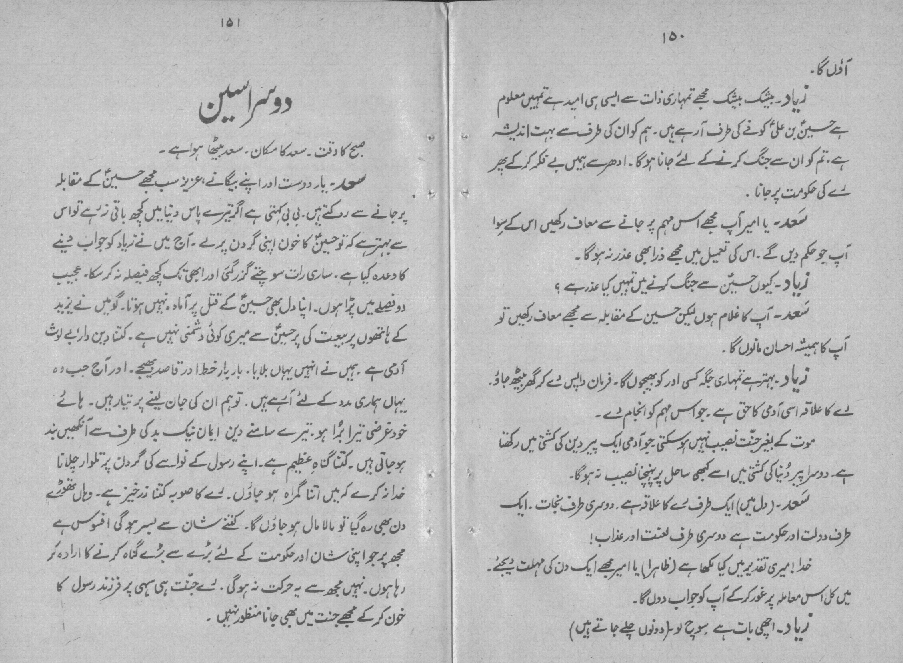 ۱۵۰
آؤں گا۔
زیاد۔ بیشک بیشک مجھے تمہاری ذات سے ایسی ہی امید ہے تمہیں معلوم
ہے حسینؑ بن علیؑ کوفے کی طرف آرہے ہیں۔ ہم کو ان کی طرف سے بہت اندیشہ
ہے، تم کو ان سے جنگ کرنے کے لئے جانا ہوگا۔ ادھر سے ہمیں بے فکر کرکے پھر
رے کی حکومت پر جانا۔
سعد۔ یا امیر آپ مجھے اس مہم پر جانے سے معاف رکھیں اس کے سوا
آپ جو حکم دیں گے۔ اس کی تعمیل میں مجھے ذرا بھی عذر نہ ہوگا۔
زیاد۔ کیوں حسینؑ سے جنگ کرنے میں تمہیں کیا عذر ہے؟
سعد۔ آپ کا غلام ہوں لیکن حسین کے مقابلہ سے مجھے معاف رکھیں تو
آپ کا ہمیشہ احسان مانوں گا۔
زیاد۔ بہتر ہے تمہاری جگہ کسی اور کو بھیجوں گا۔ فرمان واپس دے کر گھر بیٹھ جاؤ۔
رے کا علاقہ اسی آدمی کا حق ہے۔ جو اس مہم کو انجام دے۔
موت کے بغیر جنّت نصیب نہیں ہو سکتی جو آدمی ایک پیر دین کی کشتی میں رکھتا
ہے۔ دوسرا پیر دُنیا کی کشتی میں اسے کبھی ساحل پر پہنچنا نصیب نہ ہوگا۔
سعد۔ (دل میں) ایک طرف رے کا علاقہ ہے۔ دوسری طرف نجات۔ ایک
طرف دولت اور حکومت ہے دوسری طرف لعنت اور عذاب!
خدا! میری تقدیر میں کیا لکھا ہے (ظاہرا) یا امیر مجھے ایک دن کی مہلت دیجئے۔
میں کل اس معاملہ پر غور کرکے آپ کو جواب دوں گا۔
زیاد۔ اچھی بات ہے سوچ لو۔ (دونوں چلے جاتے ہیں)
۱۵۱
دوسرا سین
صبح کا وقت۔ سعد کا مکان۔ سعد بیٹھا ہوا ہے۔
سعد۔ یار دوست اور اپنے بیگانے، عزیز سب مجھے حسینؑ کے مقابلہ
پر جانے سے روکتے ہیں۔ بی بی کہتی ہے اگر تیرے پاس دنیا میں کچھ باقی نہ رہے تو اس
سے بہتر ہے کہ تو حسینؑ کا خون اپنی گردن پر لے۔ آج میں نے زیاد کو جواب دینے
کا وعدہ کیا ہے۔ ساری رات سوچتے گزر گئی اور ابھی تک کچھ فیصلہ نہ کر سکا۔ عجیب
دو فصلے میں پڑا ہوں۔ اپنا دل بھی حسینؑ کے قتل پر آمادہ نہیں ہوتا۔ گو میں نے یزید
کے ہاتھوں پر بیعت کی پر حسینؑ سے میری کوئی دشمنی نہیں ہے۔ کتنا دین دار بے لوث
آدمی ہے۔ ہمیں نے انہیں یہاں بلایا۔ بار بار خط اور قاصد بھیجے۔ اور آج جب وہ
یہاں ہماری مدد کے لئے آرہے ہیں۔ تو ہم ان کی جان لینے پر تیار ہیں۔ ہائے
خود غرضی تیرا بُرا ہو۔ تیرے سامنے دین ایمان نیک بد کی طرف سے آنکھیں بند
ہو جاتی ہیں۔ کتنا گناہِ عظیم ہے۔ اپنے رسول کے نواسے کی گردن پر تلوار چلانا
خدا نہ کرے کہ میں اتنا گمراہ ہو جاؤں۔ رے کا صوبہ کتنا زرخیز ہے۔ وہاں تھوڑے
دن بھی رہ گیا تو مالا مال ہو جاؤں گا۔ کتنے شان سے بسر ہوگی افسوس ہے
مجھ پر جو اپنی شان اور حکومت کے لئے بڑے سے بڑے گناہ کرنے کا ارادہ کر
رہا ہوں۔ نہیں مجھ سے یہ حرکت نہ ہوگی۔ رے جنّت ہی سہی پر فرزند رسول کا
خون کرکے مجھے جنت میں بھی جانا منظور نہیں۔